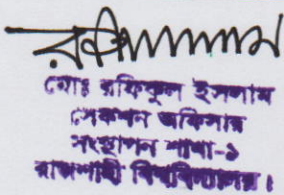 রফিকুল ইসলাম
মোঃ রফিকুল ইসলাম
সেকশন অফিসার
সংস্থাপন শাখা-১
রাজশাহী বিশ্ববিদ্যালয়।